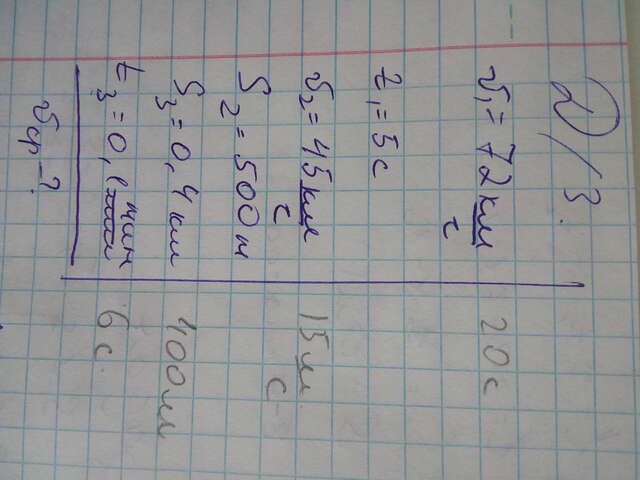 Д/З.
v₁ = 72 км/ч 20 с
t₁ = 5 с
v₂ = 45 км/с 15 м/с
S₂ = 500 м
S₃ = 0,4 км 400 м
t₃ = 0,1 мин 6 с
vср - ?